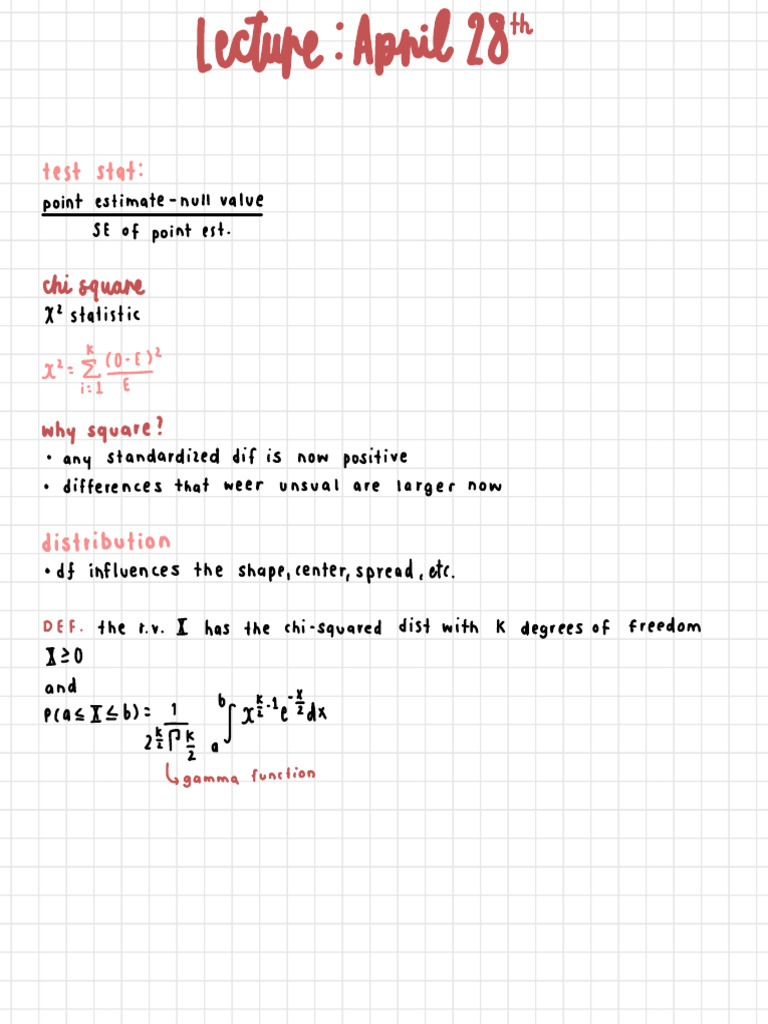 Lecture: April 28th
test stat:
point estimate - null value
SE of point est.
chi square
χ² statistic
x² = Σ (O-E)²
k
i=1 E
why square?
• any standardized dif is now positive
• differences that weer unsual are larger now
distribution
• df influences the shape, center, spread, etc.
DEF. the r.v. X has the chi-squared dist with k degrees of freedom
X ≥ 0
and
P(a ≤ X ≤ b) = 1 / (2^(k/2) Γ k/2) ∫_a^b x^(k/2 - 1) e^(-x/2) dx
↳ gamma function